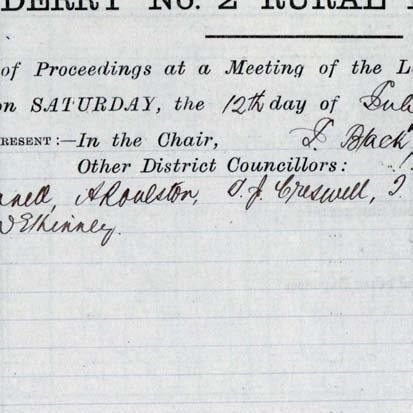 DERRY No. 2 RURAL
of Proceedings at a Meeting of the L
on SATURDAY, the 12th day of Jul
PRESENT:—In the Chair, J. Black
Other District Councillors:
nnell, A Roulston, T. J. Creswell, J.
McKinney.